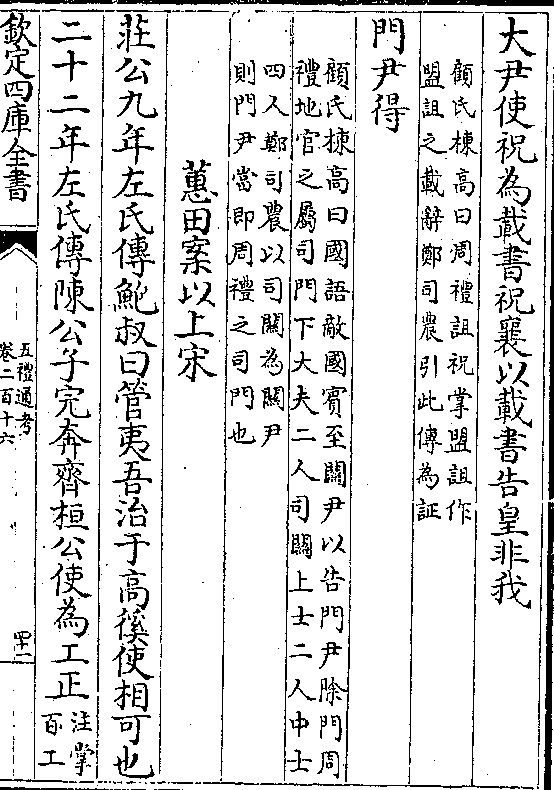 大尹使祝為載書祝襄以載書告皇非我
顧氏棟高曰周禮詛祝掌盟詛作
盟詛之載辭鄭司農引此傳為証
門尹得
顧氏棟高曰國語敵國賓至關尹以告門尹除門周
禮地官之屬司門下大夫二人司關上士二人中士
四人鄭司農以司關為關尹
則門尹當即周禮之司門也
蕙田案以上宋
莊公九年左氏傳鮑叔曰管夷吾治于高傒使相可也
二十二年左氏傳陳公子完奔齊桓公使為工正注掌
百工
欽定四庫全書
五禮通考
卷二百十六
四十二